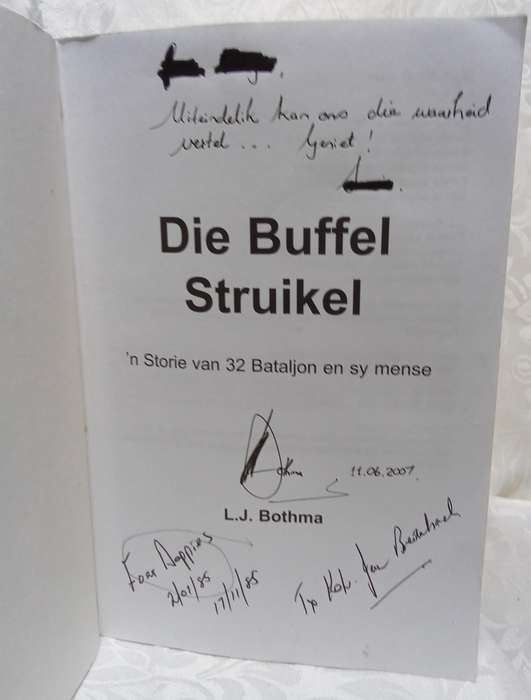 Uiteindelik kan ons die waarheid
vertel ... Geniet!
Die Buffel
Struikel
'n Storie van 32 Bataljon en sy mense
11.06.2007
L.J. Bothma
2/01/85
17/11/85
Jan Breytenbach